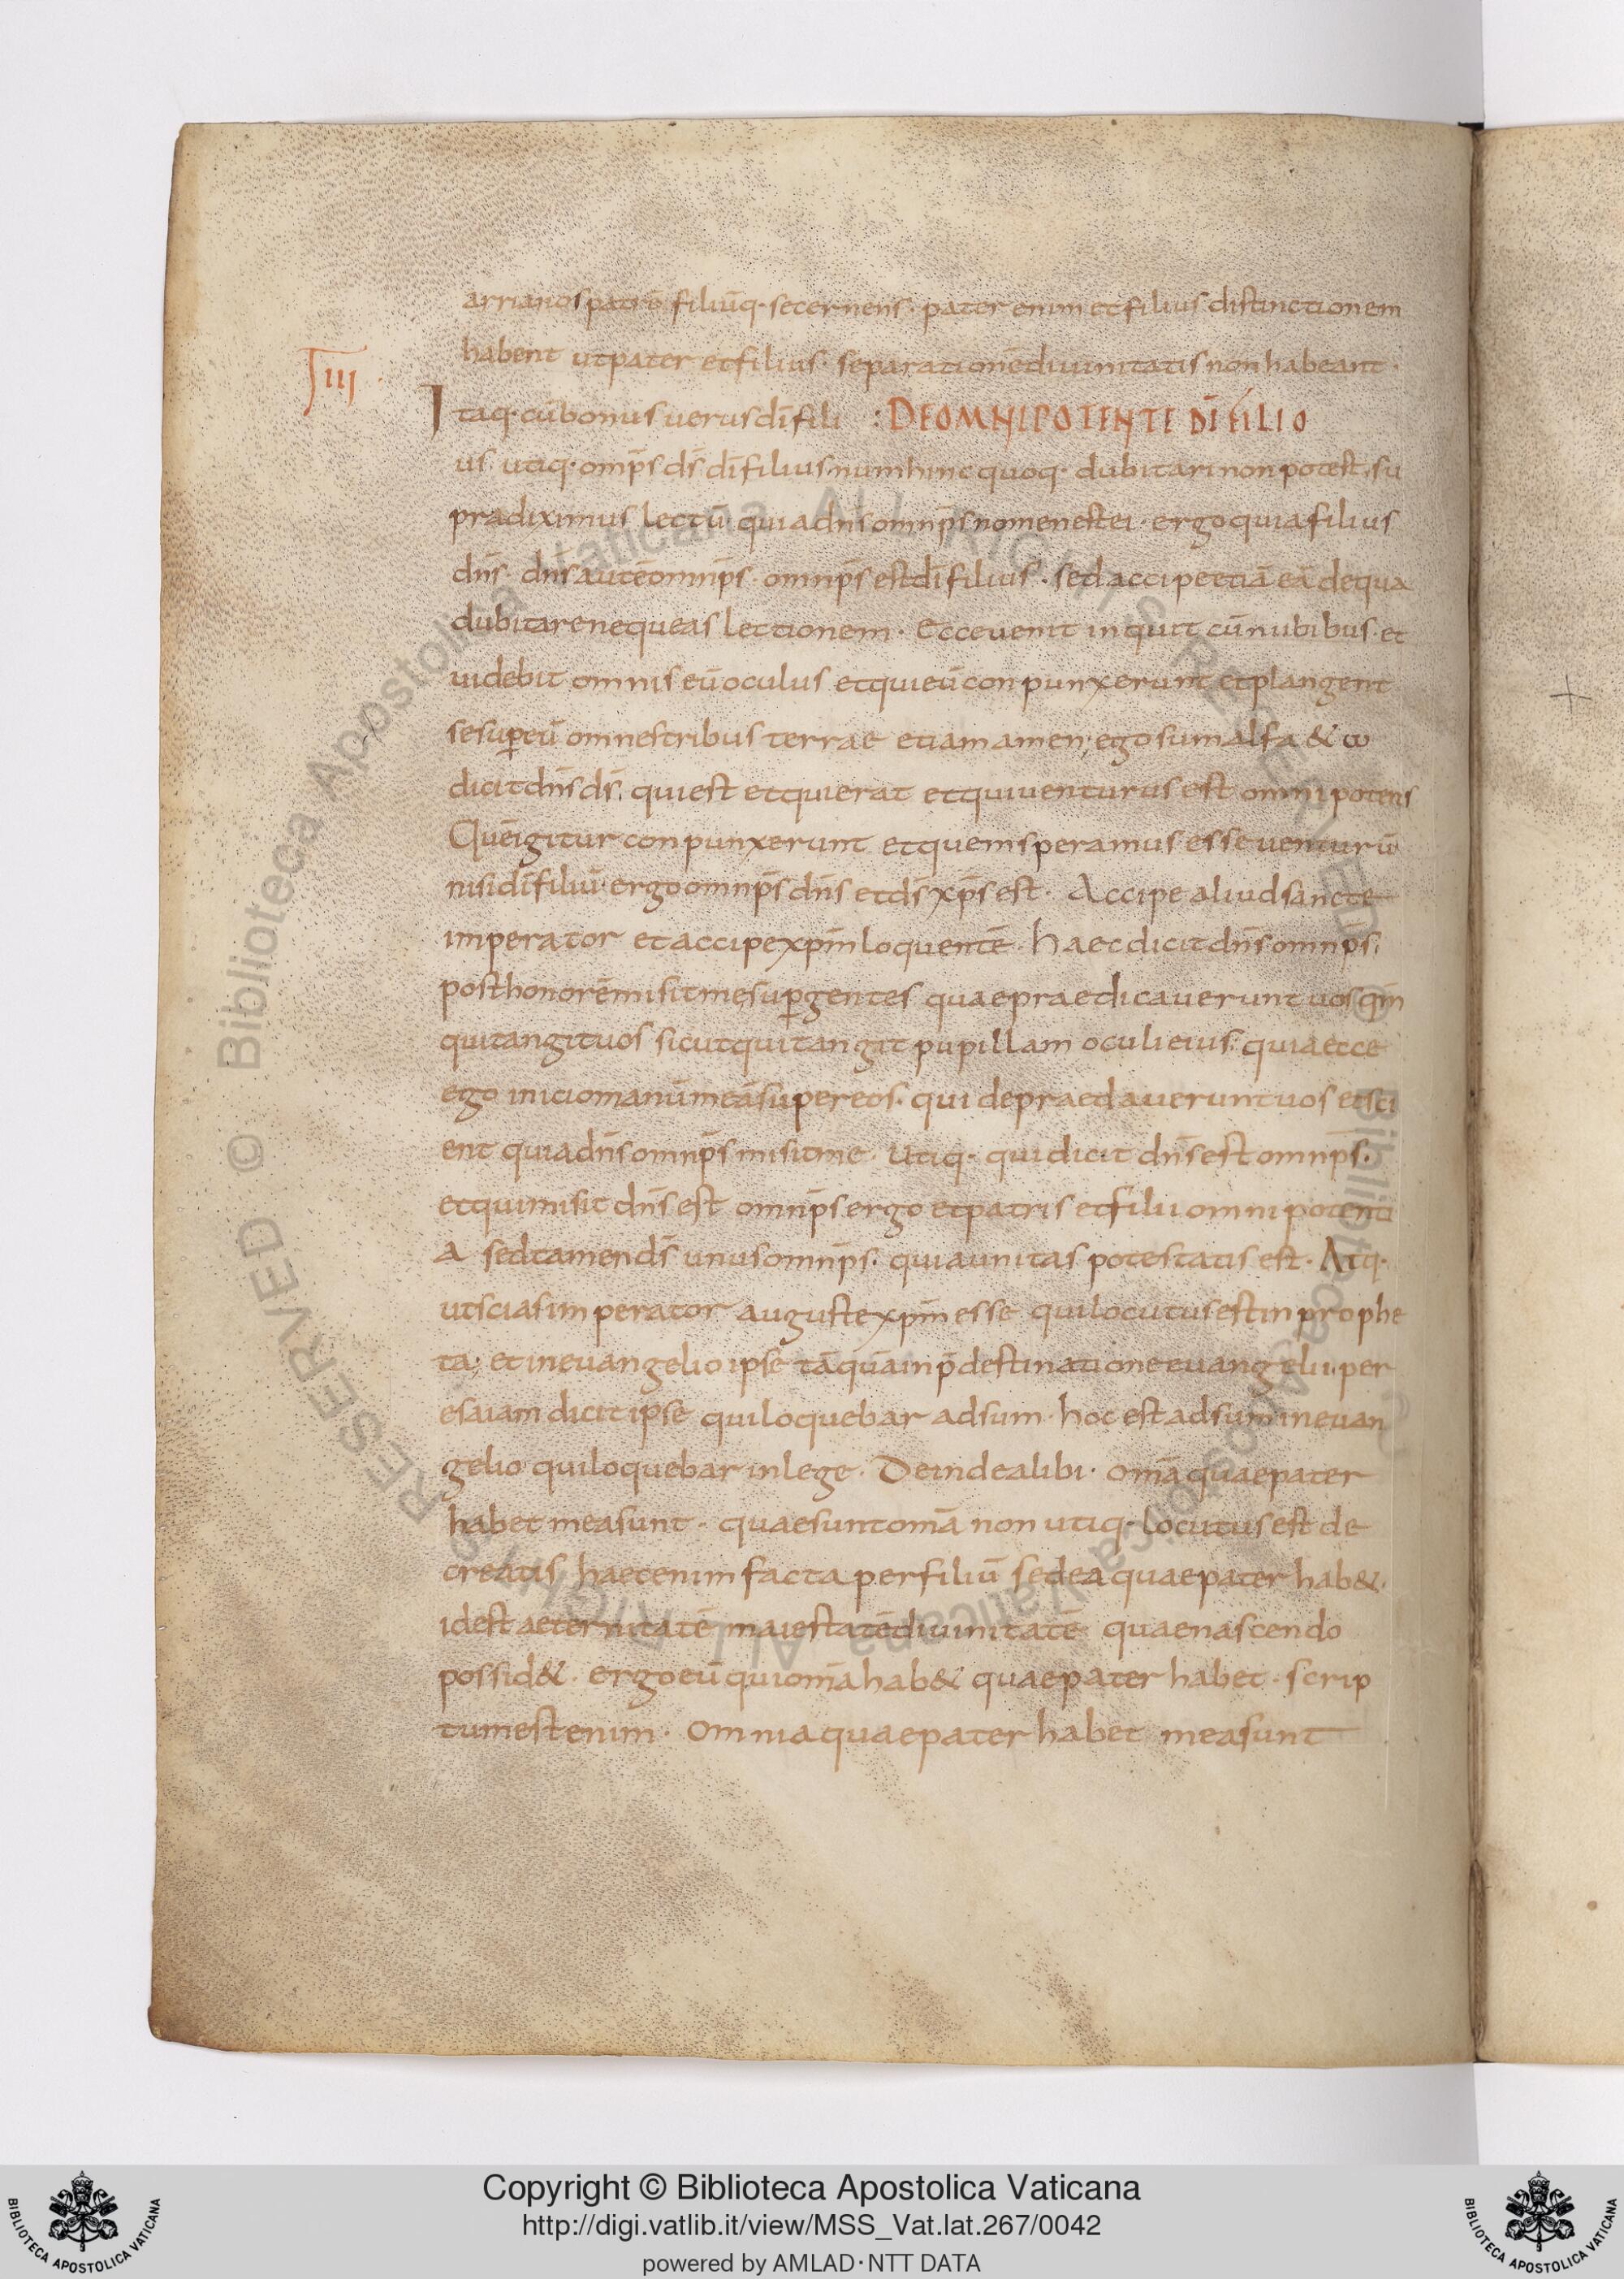 arrianos patrē filiūq· secernens· pater enim et filius distinctionem
habent ut pater et filius· separationē diuinitatis non habeant·
IIII·
Itaq· cū bonus uerus dī fili : DE OMNIPOTENTE DĪ FILIO
us· utiq· omp̄s ds̄ dī filius· num hinc quoq· dubitari non potest, su
pradiximus lectū· quia dn̄s omnip̄s nomen est ei· ergo quia filius
dn̄s· dn̄s autē omnip̄s· omnip̄s est dī filius· sed accipe etiā eā de qua
dubitare nequeas lectionem· Ecce uenit inquit cū nubibus· et
uidebit omnis eū oculus et qui eū conpunxerunt et plangent
se sup̄ eū omnes tribus terrae etiam amen; ego sum alfa & ω
dicit dn̄s ds̄, qui est et qui erat et qui uenturus est omnipotens
Quē igitur conpunxerunt et quem speramus esse uenturū
nisi dī filiū· ergo omnip̄s dn̄s et ds̄ xp̄s est· Accipe aliud sancte
imperator et accipe xp̄m loquentē· haec dicit dn̄s omnip̄s,
post honorē misit me sup̄ gentes quae praedicauerunt uos qm̄
qui tangit uos sicut qui tangit pupillam oculi eius· quia ecce
ego inicio manū meā super eos· qui depraedauerunt uos et sci
ent quia dn̄s omnip̄s misit me· Utiq· qui dicit dn̄s est omnip̄s·
et qui misit dn̄s est omnip̄s ergo et patris et filii omnipotenti
a sed tamen ds̄ unus omnip̄s· quia unitas potestatis est· Atq·
ut scias imperator auguste xp̄m esse qui locutus est in prophe
ta; et in euangelio ipse tāquā in p̄destinatione euangelii· per
esaiam dicit ipse qui loquebar adsum· hoc est adsum in euan
gelio qui loquebar in lege· Deinde alibi· omā quae pater
habet mea sunt· quae sunt omā non utiq· locutus est de
creatis haec enim facta per filiū sed ea quae pater hab&·
id est aeternitatē maiestatē diuinitatē quae nascendo
possid&· ergo eū qui omā hab& quae pater habet· scrip
tum est enim· Omnia quae pater habet mea sunt
Copyright © Biblioteca Apostolica Vaticana
http://digi.vatlib.it/view/MSS_Vat.lat.267/0042
powered by AMLAD·NTT DATA
BIBLIOTECA APOSTOLICA VATICANA
BIBLIOTECA APOSTOLICA VATICANA